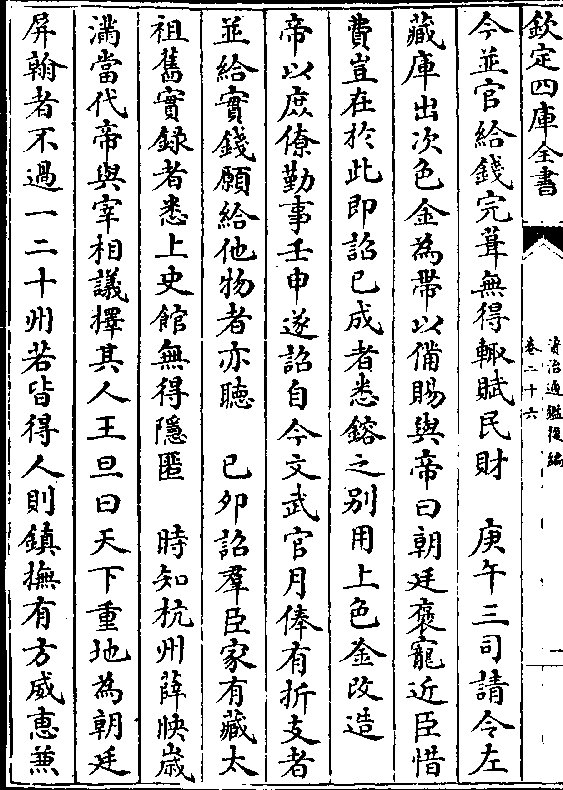 欽定四庫全書
資治通鑑後編
卷二十六
一
今並官給錢完葺無得輙賦民財　庚午三司請令左
藏庫出次色金為帶以備賜與帝曰朝廷褒寵近臣惜
費豈在於此即詔已成者悉鎔之别用上色金改造
帝以庶僚勤事壬申遂詔自今文武官月俸有折支者
並給實錢願給他物者亦聽　已卯詔羣臣家有藏太
祖舊實録者悉上史館無得隱匿　時知杭州薛映歳
滿當代帝與宰相議擇其人王旦曰天下重地為朝廷
屏翰者不過一二十州若皆得人則鎮撫有方威惠兼